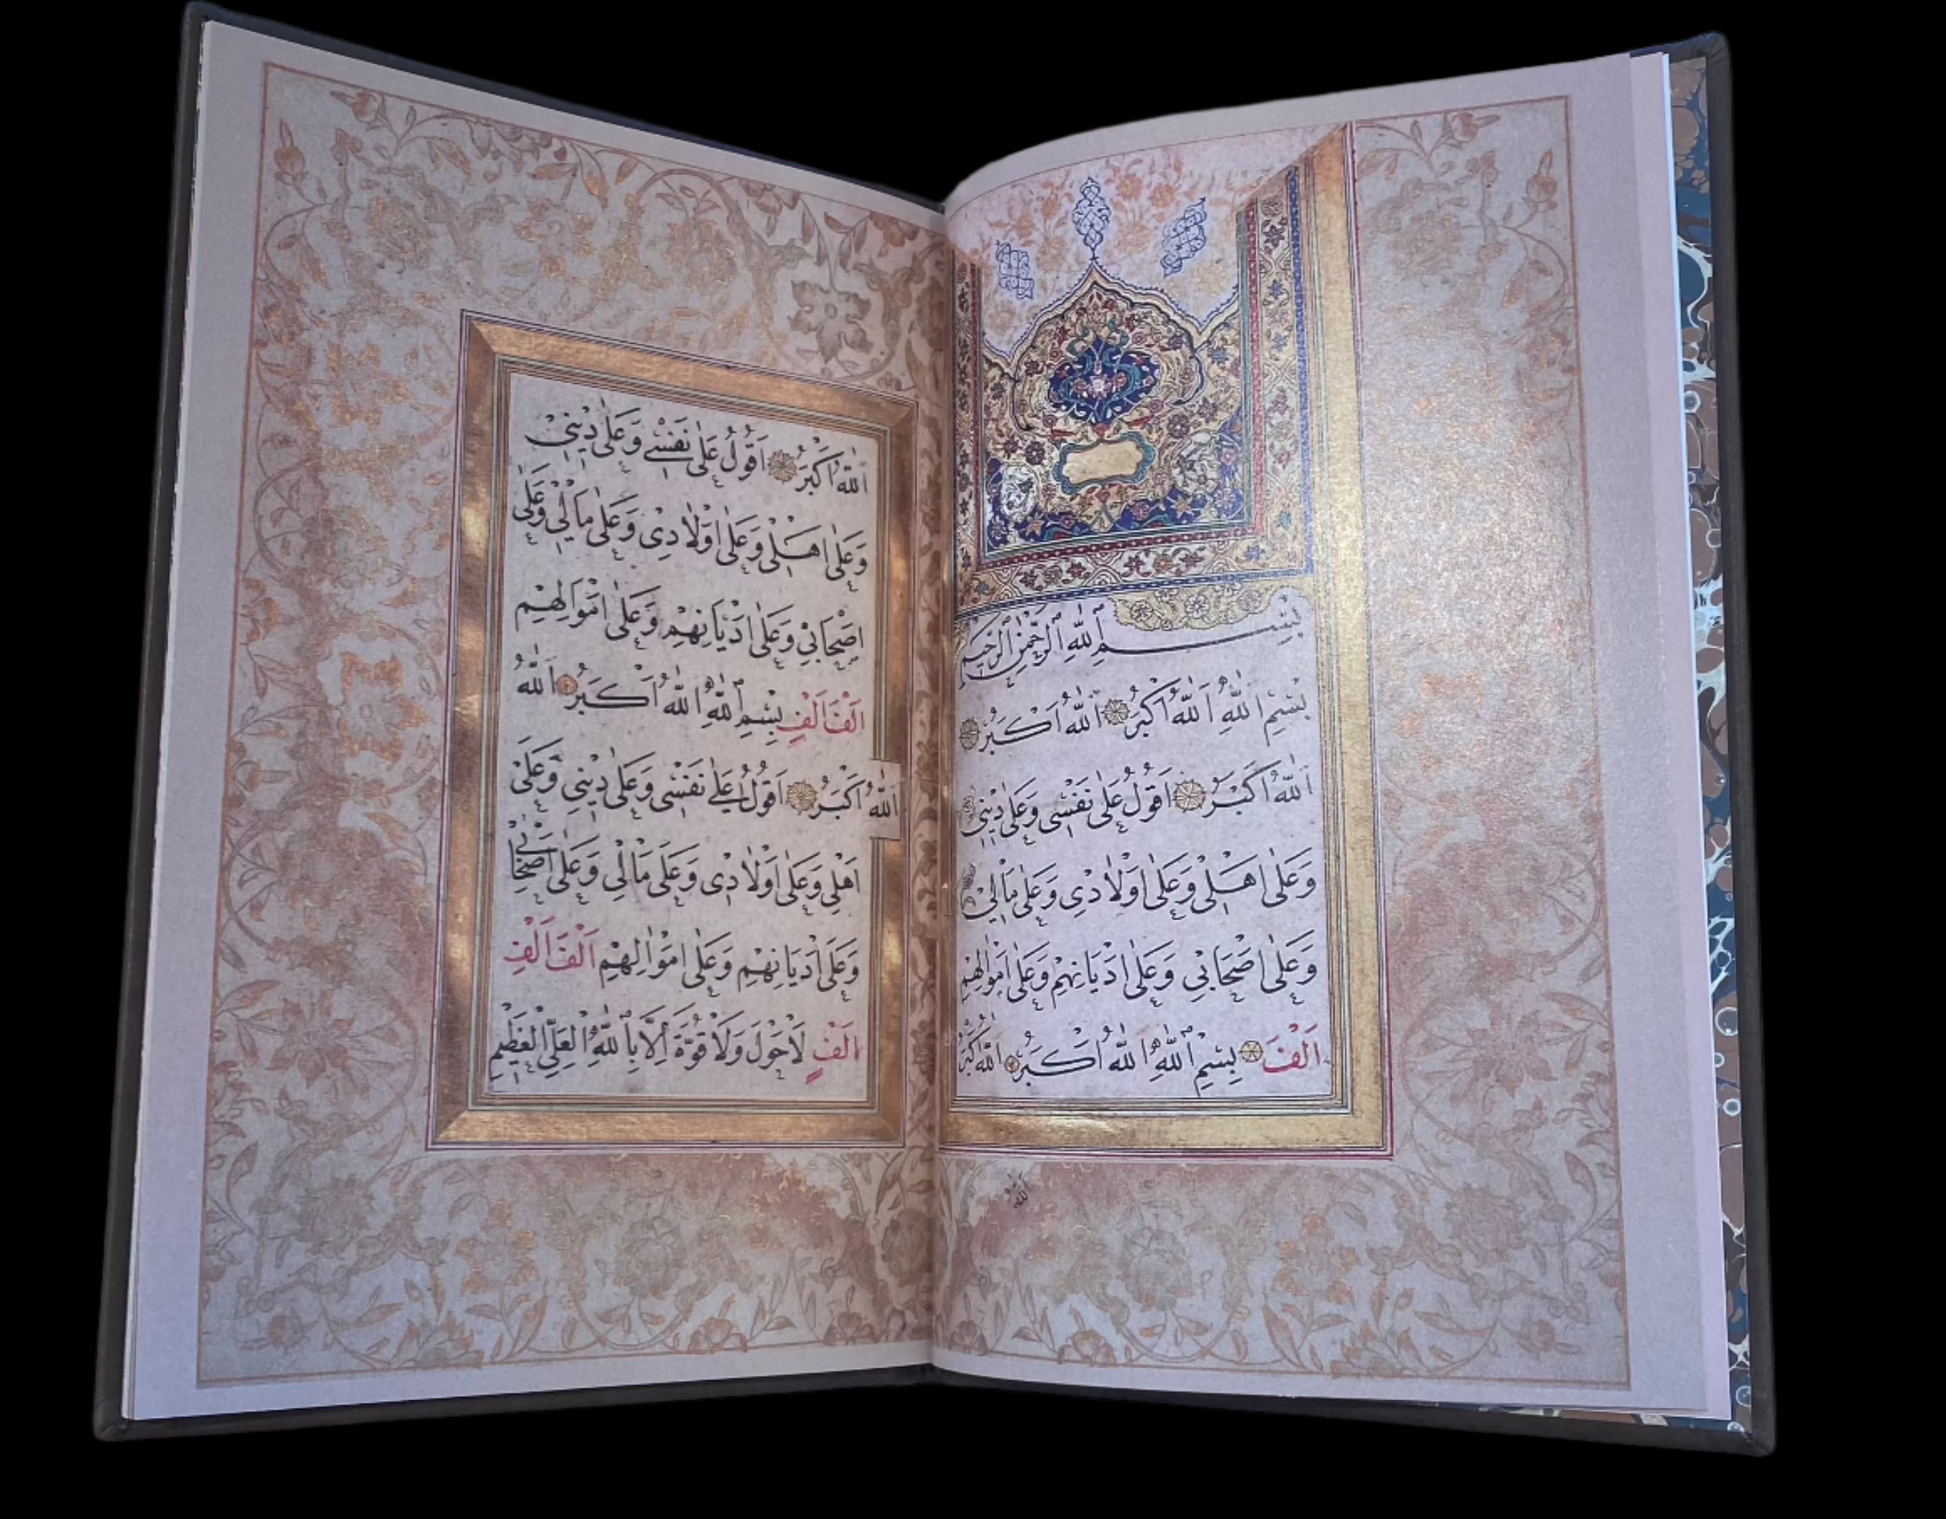 بِسْمِ اللّٰهِ الرَّحْمٰنِ الرَّحِيْمِ
بِسْمِ اللّٰهِ اَللّٰهُ اَكْبَرُ اَللّٰهُ اَكْبَرُ
اَللّٰهُ اَكْبَرُ اَقُوْلُ عَلٰى نَفْسٖى وَعَلٰى دٖيْنٖى
وَعَلٰى اَهْلٖى وَعَلٰى اَوْلَادٖى وَعَلٰى مَالٖى
وَعَلٰى اَصْحَابٖى وَعَلٰى اَدْيَانِهِمْ وَعَلٰى اَمْوَالِهِمْ
اَلْفَ بِسْمِ اللّٰهِ اَللّٰهُ اَكْبَرُ اَللّٰهُ اَكْبَرُ
اَللّٰهُ
اَللّٰهُ اَكْبَرُ اَقُوْلُ عَلٰى نَفْسٖى وَعَلٰى دٖيْنٖى
وَعَلٰى اَهْلٖى وَعَلٰى اَوْلَادٖى وَعَلٰى مَالٖى وَعَلٰى
اَصْحَابٖى وَعَلٰى اَدْيَانِهِمْ وَعَلٰى اَمْوَالِهِمْ
اَلْفَ اَلْفٍ بِسْمِ اللّٰهِ اَللّٰهُ اَكْبَرُ اَللّٰهُ
اَللّٰهُ اَكْبَرُ اَقُوْلُ عَلٰى نَفْسٖى وَعَلٰى دٖينٖى وَعَلٰى
اَهْلٖى وَعَلٰى اَوْلَادٖى وَعَلٰى مَالٖى وَعَلٰى اَصْحَابٖى
وَعَلٰى اَدْيَانِهِمْ وَعَلٰى اَمْوَالِهِمْ اَلْفَ اَلْفِ
اَلْفٍ لَاحَوْلَ وَلَا قُوَّةَ اِلَّا بِاللّٰهِ الْعَلِيِّ الْعَظٖيْمِ